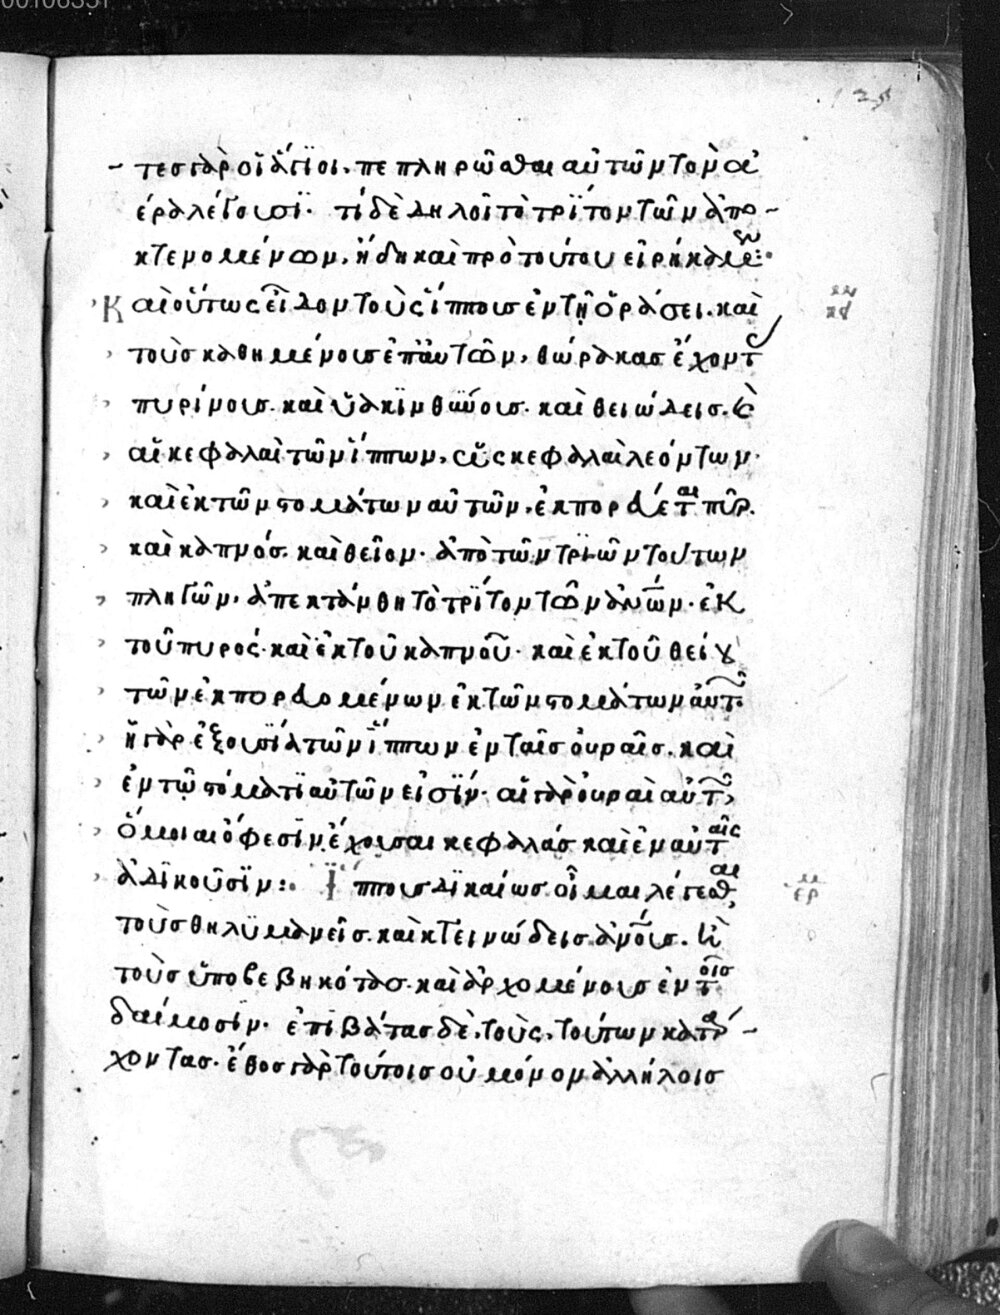 00106331
125
τες γὰρ οἱ ἅγϊοι· πεπληρῶσθαι αὐτῶν τὸν ἀ
έρα λέγουσϊ· τί δὲ δηλοῖ τὸ τρΐτον τῶν ἀπο
κτενομένων, ἤδη καὶ πρὸ τούτου εἰρήκαμεν:·
Καὶ οὕτως εἶδον τοὺς ἵππους ἐν τῇ ὁράσει· καὶ μ κδ
τοὺς καθημένους ἐπ' αὐτῶν, θώρακας ἔχοντ
πυρίνους· καὶ ὑακϊνθΐνους· καὶ θειώδεις· καὶ
αἱ κεφαλαὶ τῶν ἵππων, ὡς κεφαλαὶ λεόντων·
καὶ ἐκ τῶν στομάτων αὐτῶν, ἐκπορεύεται πῦρ·
καὶ καπνός· καὶ θεῖον· ἀπὸ τῶν τρϊῶν τούτων
πληγῶν, ἀπεκτάνθη τὸ τρΐτον τῶν ἀνων· ἐκ
τοῦ πυρός· καὶ ἐκ τοῦ καπνοῦ· καὶ ἐκ τοῦ θείου
τῶν ἐκπορευομένων ἐκ τῶν στομάτων αὐτ
ἡ γὰρ ἐξουσϊα τῶν ἵππων ἐν ταῖς οὐραῖς· καὶ
ἐν τῷ στόματϊ αὐτῶν εἰσϊν· αἱ γὰρ οὐραὶ αὐτ
ὅμοιαι ὄφεσϊν, ἔχουσαι κεφαλὰς καὶ ἐν αὐταῖς
ἀδϊκοῦσϊν:· Ἵππους δϊκαίως οἶμαι λέγεσθαι μ ερ
τοὺς θηλϋμανεῖς· καὶ κτεινώδεις ἀνους· καὶ
τοὺς ὑποβεβηκότας· καὶ ἀρχομένους ἐν τοῖς
δαίμοσϊν· ἐπϊβάτας δὲ, τοὺς, τούτων κατάρ
χοντας· ἔθος γὰρ τούτοις οὐ μόνον ἀλλήλοις